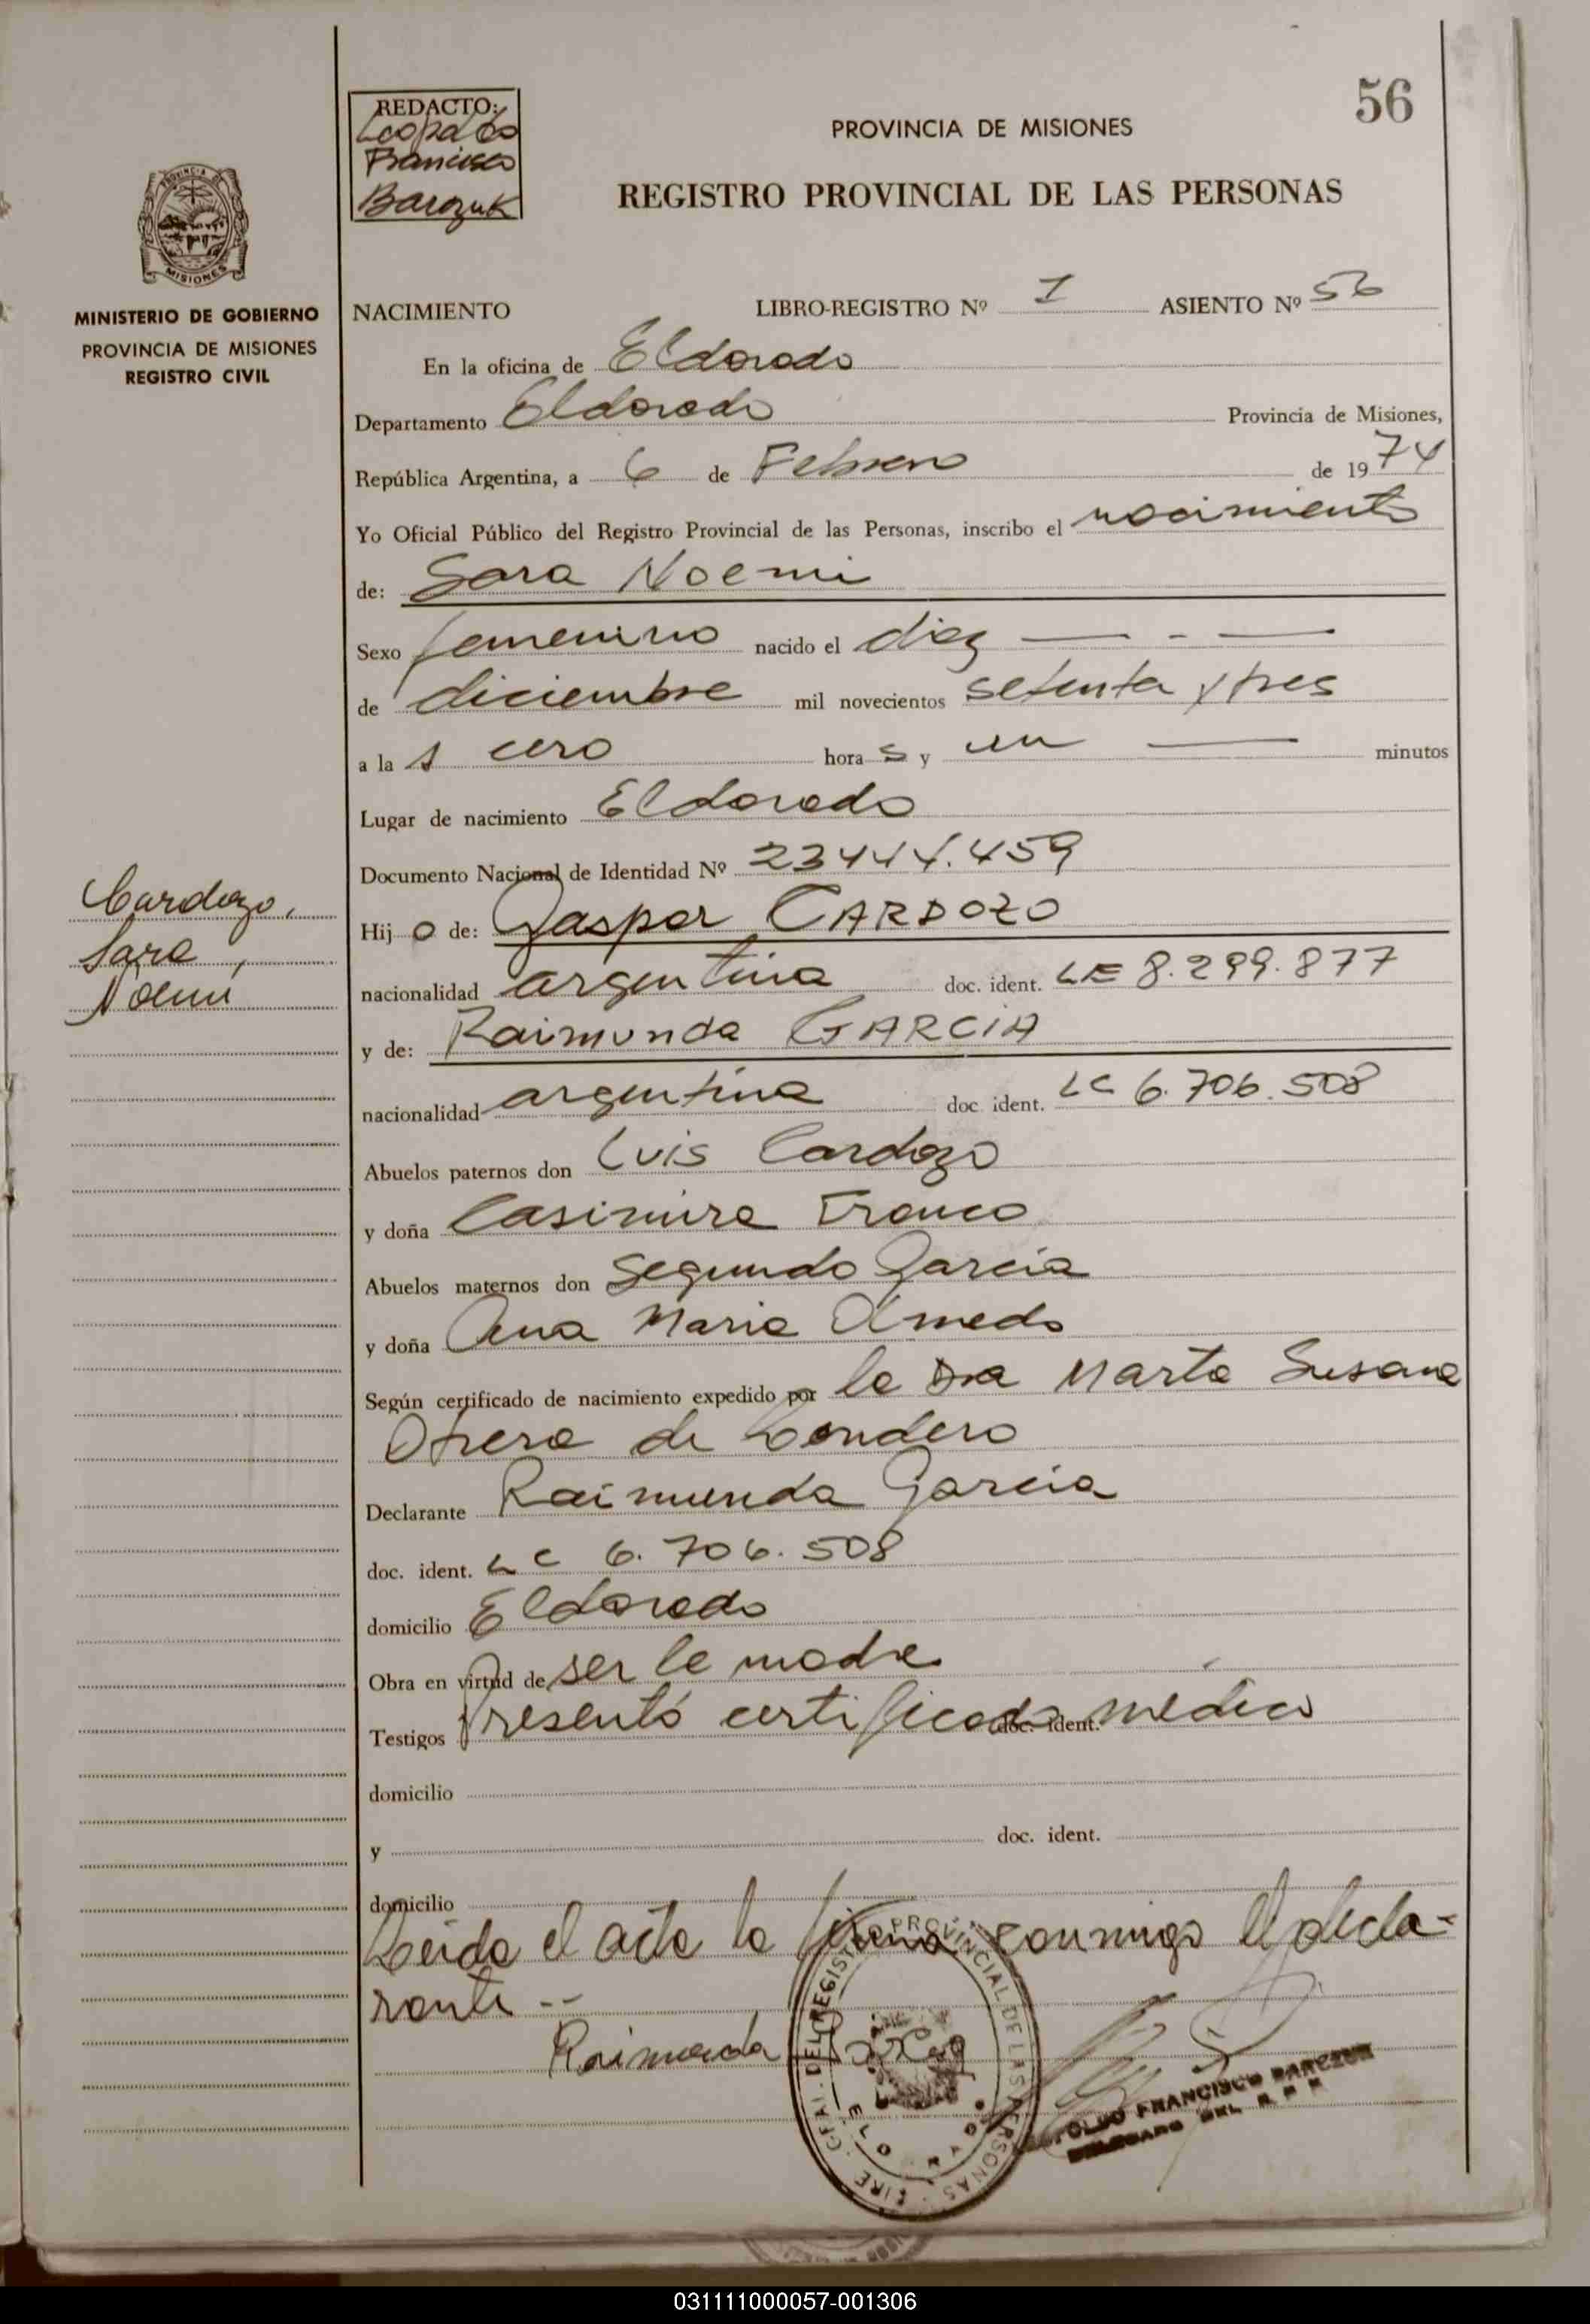 56
REDACTO:
Leopoldo
Francisco
Barczuk
PROVINCIA DE MISIONES
REGISTRO PROVINCIAL DE LAS PERSONAS
MISIONES
MINISTERIO DE GOBIERNO
PROVINCIA DE MISIONES
REGISTRO CIVIL
NACIMIENTO LIBRO-REGISTRO Nº I ASIENTO Nº 56
En la oficina de Eldorado
Departamento Eldorado Provincia de Misiones,
República Argentina, a 6 de Febrero de 1974
Yo Oficial Público del Registro Provincial de las Personas, inscribo el nacimiento
de: Sara Noemi
Sexo femenino nacido el diez
de diciembre mil novecientos setenta y tres
a la s cero hora s y un minutos
Lugar de nacimiento Eldorado
Documento Nacional de Identidad Nº 23444.459
Cardozo,
Sara,
Noemi
Hij o de: Gaspar CARDOZO
nacionalidad argentina doc. ident. LE 8.299.877
y de: Raimunda GARCIA
nacionalidad argentina doc ident. LC 6.706.508
Abuelos paternos don Luis Cardozo
y doña Casimira Franco
Abuelos maternos don Segundo Garcia
y doña Ana Maria Olmedo
Según certificado de nacimiento expedido por la Dra Marta Susana
Otrera de
Declarante Raimunda Garcia
doc. ident. LC 6.706.508
domicilio Eldorado
Obra en virtud de ser la madre
Testigos Presentó certificado doc. ident. médico
domicilio
y doc. ident.
domicilio
Leida el acta la firma conmigo el decla-
rante --
Raimunda Garcia
REGISTRO PROVINCIAL DE LAS PERSONAS
ELDORADO
FRANCISCO BARCZUK
DELEGADO DEL R P P
031111000057-001306